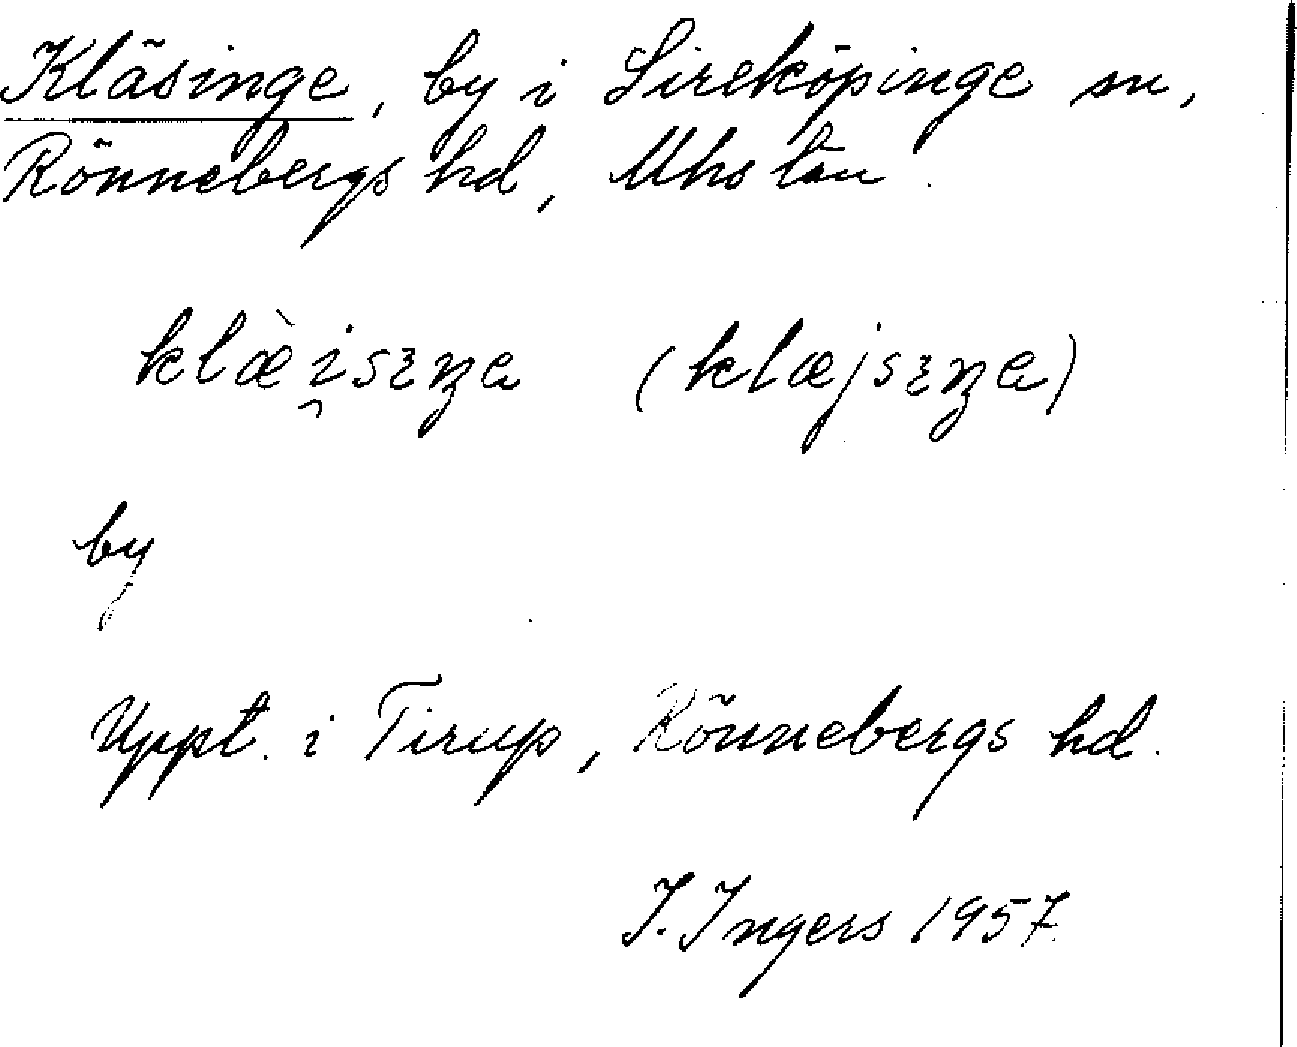 Kläsinge, by i Sireköpinge sn,
Rönnebergs hd, Mhs län.
klæ̀i̯sıŋa (klæjsıŋa)
by
Uppt. i Tirup, Rönnebergs hd.
I. Ingers 1957.